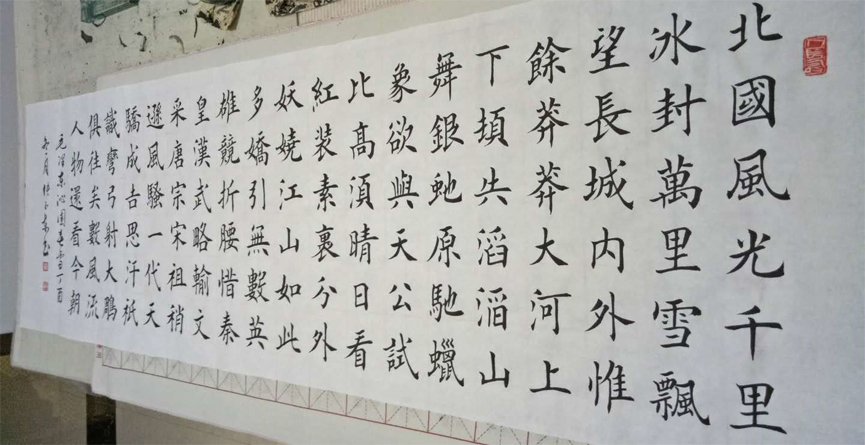 北國風光千里
冰封萬里雪飄
望長城内外惟
餘莽莽大河上
下頓失滔滔山
舞銀虵原馳蠟
象欲與天公試
比高須晴日看
紅装素裹分外
妖嬈江山如此
多嬌引無數英
雄競折腰惜秦
皇漢武略輸文
采唐宗宋祖稍
遜風騷一代天
驕成吉思汗祇
識彎弓射大鵰
俱往矣數風流
人物還看今朝
毛澤東沁園春雪丁酉
冬月